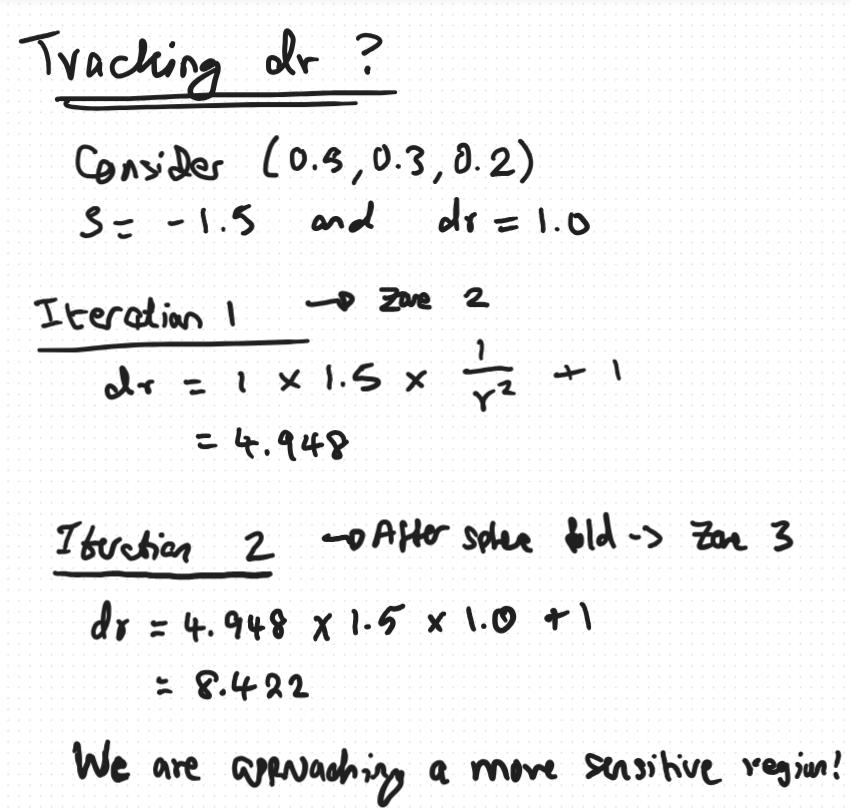 Tracking dr ?
Consider (0.5, 0.3, 0.2)
S = -1.5 and dr = 1.0
Iteration 1 → Zone 2
dr = 1 × 1.5 × 1/r² + 1
= 4.948
Iteration 2 → After sphere fold -> Zone 3
dr = 4.948 × 1.5 × 1.0 + 1
= 8.422
We are approaching a more sensitive region!